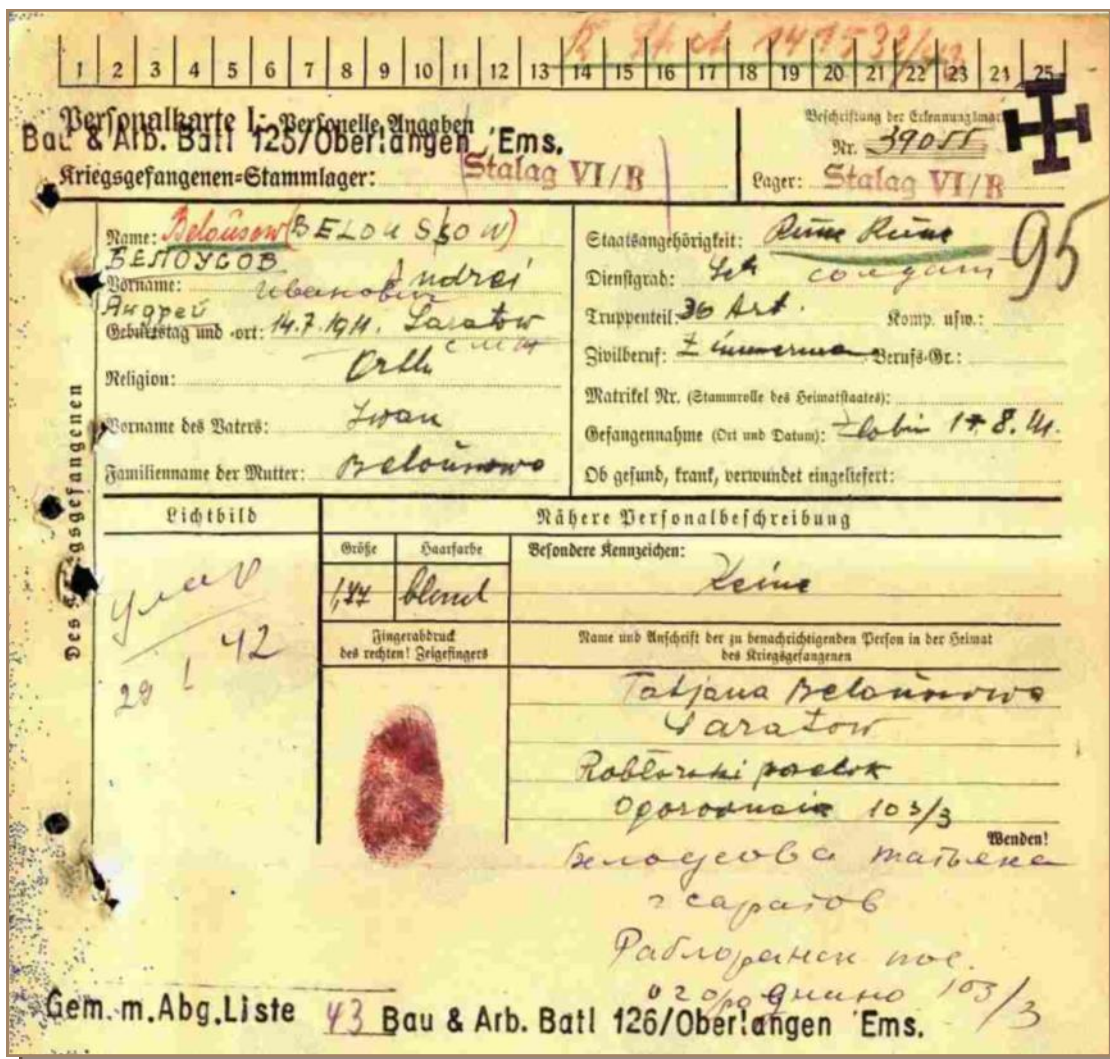 1 2 3 4 5 6 7 8 9 10 11 12 13 14 15 16 17 18 19 20 21 22 23 24 25
Personalkarte I: Personelle Angaben
Bau & Arb. Batl 125/Oberlangen 'Ems.
Kriegsgefangenen-Stammlager: Stalag VI/B
Beschriftung der Erkennungsmar
Nr. 39055
Lager: Stalag VI/B
Name: Beloúsow (BELOUSSOW)
БЕЛОУСОВ
Vorname: Andrei
Иванович
Андрей
Geburtstag und -ort: 14.7.1911. Saratow
Religion: Orth
Vorname des Vaters: Iwan
Familienname der Mutter: Beloúsowa
Staatsangehörigkeit:
95
Dienstgrad: солдат
Truppenteil: 36 Art. Komp. usw.:
Zivilberuf: Zimmerman Berufs-Gr.:
Matrikel Nr. (Stammrolle des Heimatstaates):
Gefangennahme (Ort und Datum): 8. 41.
Ob gesund, krank, verwundet eingeliefert:
Des Kriegsgefangenen
Lichtbild
42
Nähere Personalbeschreibung
Größe Haarfarbe
1,77 blond
Besondere Kennzeichen:
Keine
Fingerabdruck
des rechten! Zeigefingers
Name und Anschrift der zu benachrichtigenden Person in der Heimat
des Kriegsgefangenen
Tatjana Beloúsowa
Saratow
103/3
Wenden!
Белоусова Татьяна
г Саратов
пос.
103/3
Gem.m.Abg.Liste 43 Bau & Arb. Batl 126/Oberlangen 'Ems.